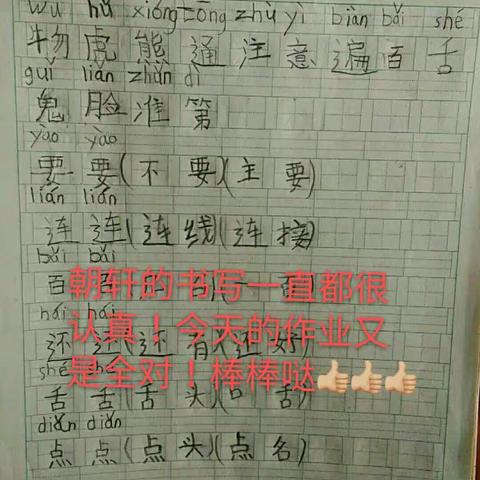 wù hǔ xióng tōng zhù yì biàn bǎi shé
物虎熊通注意遍百舌
guǐ liǎn zhǔn dì
鬼脸准第
yào yào
要要(不要)(主要)
lián lián
连连(连线)(连接)
bǎi bǎi
百
朝轩的书写一直都很
hái hái
认真！今天的作业又
还还(还有)(还好)
shé shé
是全对！棒棒哒👍🏻👍🏻👍🏻
舌舌(舌头)(口舌)
diǎn diǎn
点点(点头)(点名)